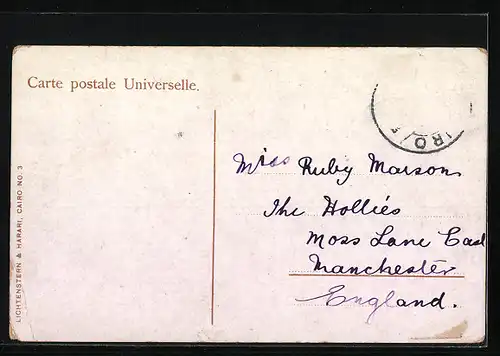 Carte postale Universelle.
LICHTENSTERN & HARARI, CAIRO NO. 3
Miss Ruby Marson
The Hollies
Moss Lane East
Manchester
England.